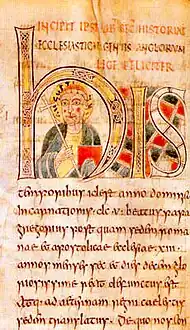 INCIPIT IPSE SEC HISTORIAE
ECCLESIASTICAE GENTIS ANGLORUM
FELICITER
hIS
temporibus id est anno dominicae
incarnationis dcu beatus papa
gregorius postquam sedem roma
nae et apostolicae ecclesiae xiii
annos menses sex et dies decem glo
riosissime rexit defunctus est
atq: ad aeternam regni caelestis
sedem translatus. De quo nos